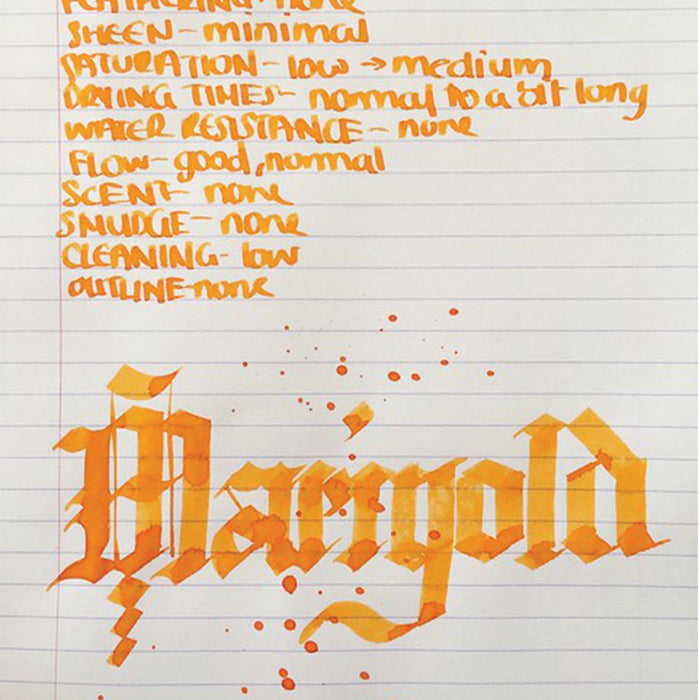 FEATHERING - none
SHEEN - minimal
SATURATION - low → medium
DRYING TIMES - normal to a bit long
WATER RESISTANCE - none
FLOW - good, normal
SCENT - none
SMUDGE - none
CLEANING - low
OUTLINE - none
Marigold